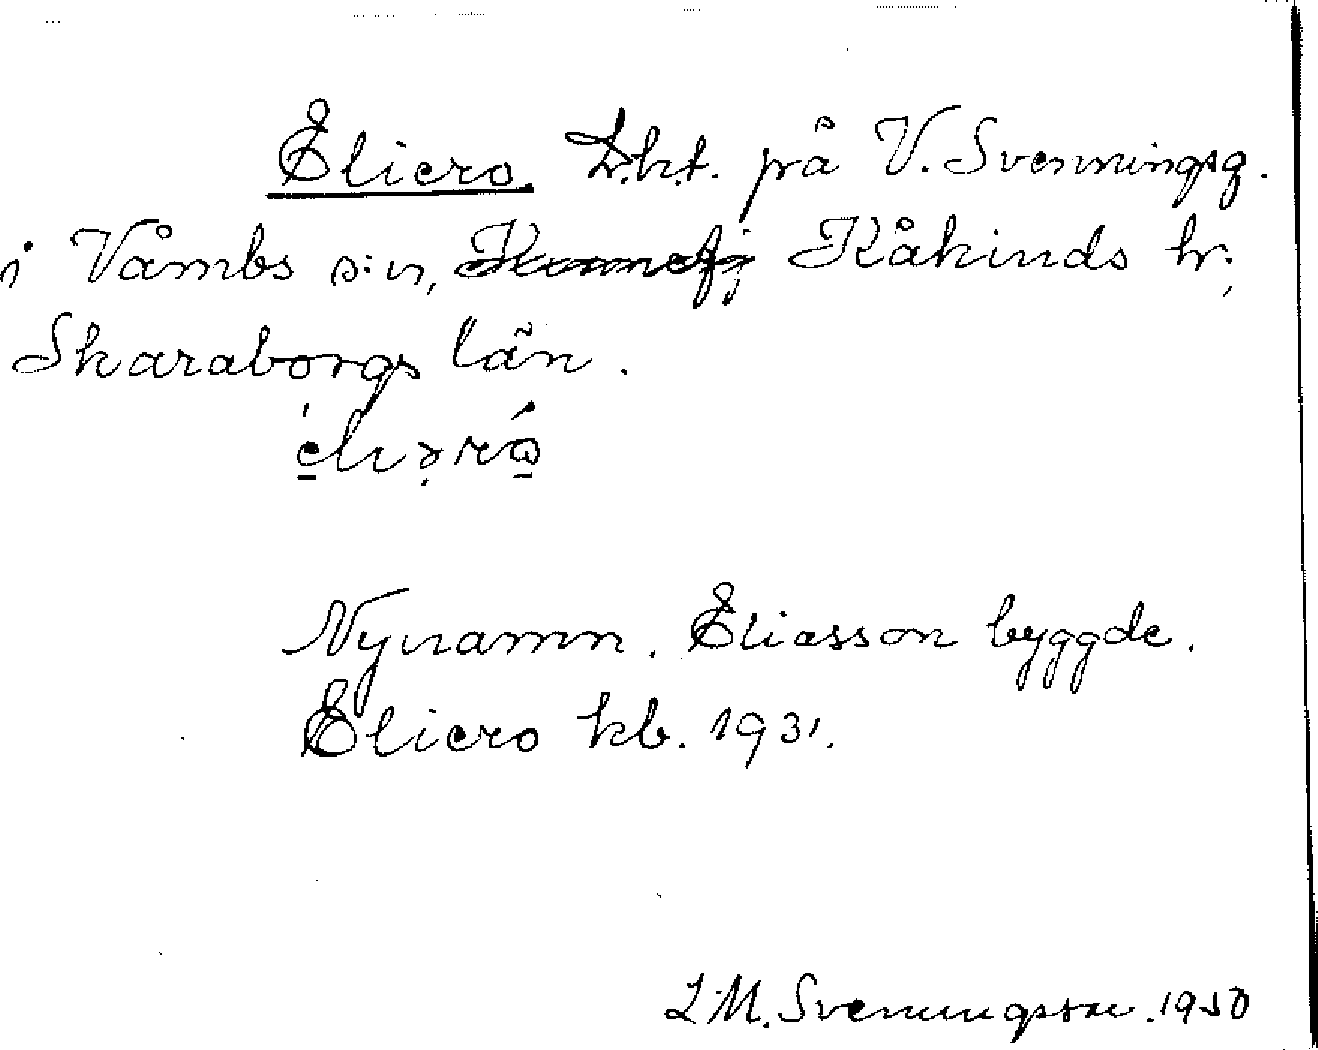 Eliero. Lht. på V. Svenningsg.
i Våmbs s:n, Kåkinds hr,
Skaraborgs län.
Nynamn. Eliasson byggde.
Eliero kb. 1931.
L M. Svenningsson. 1950